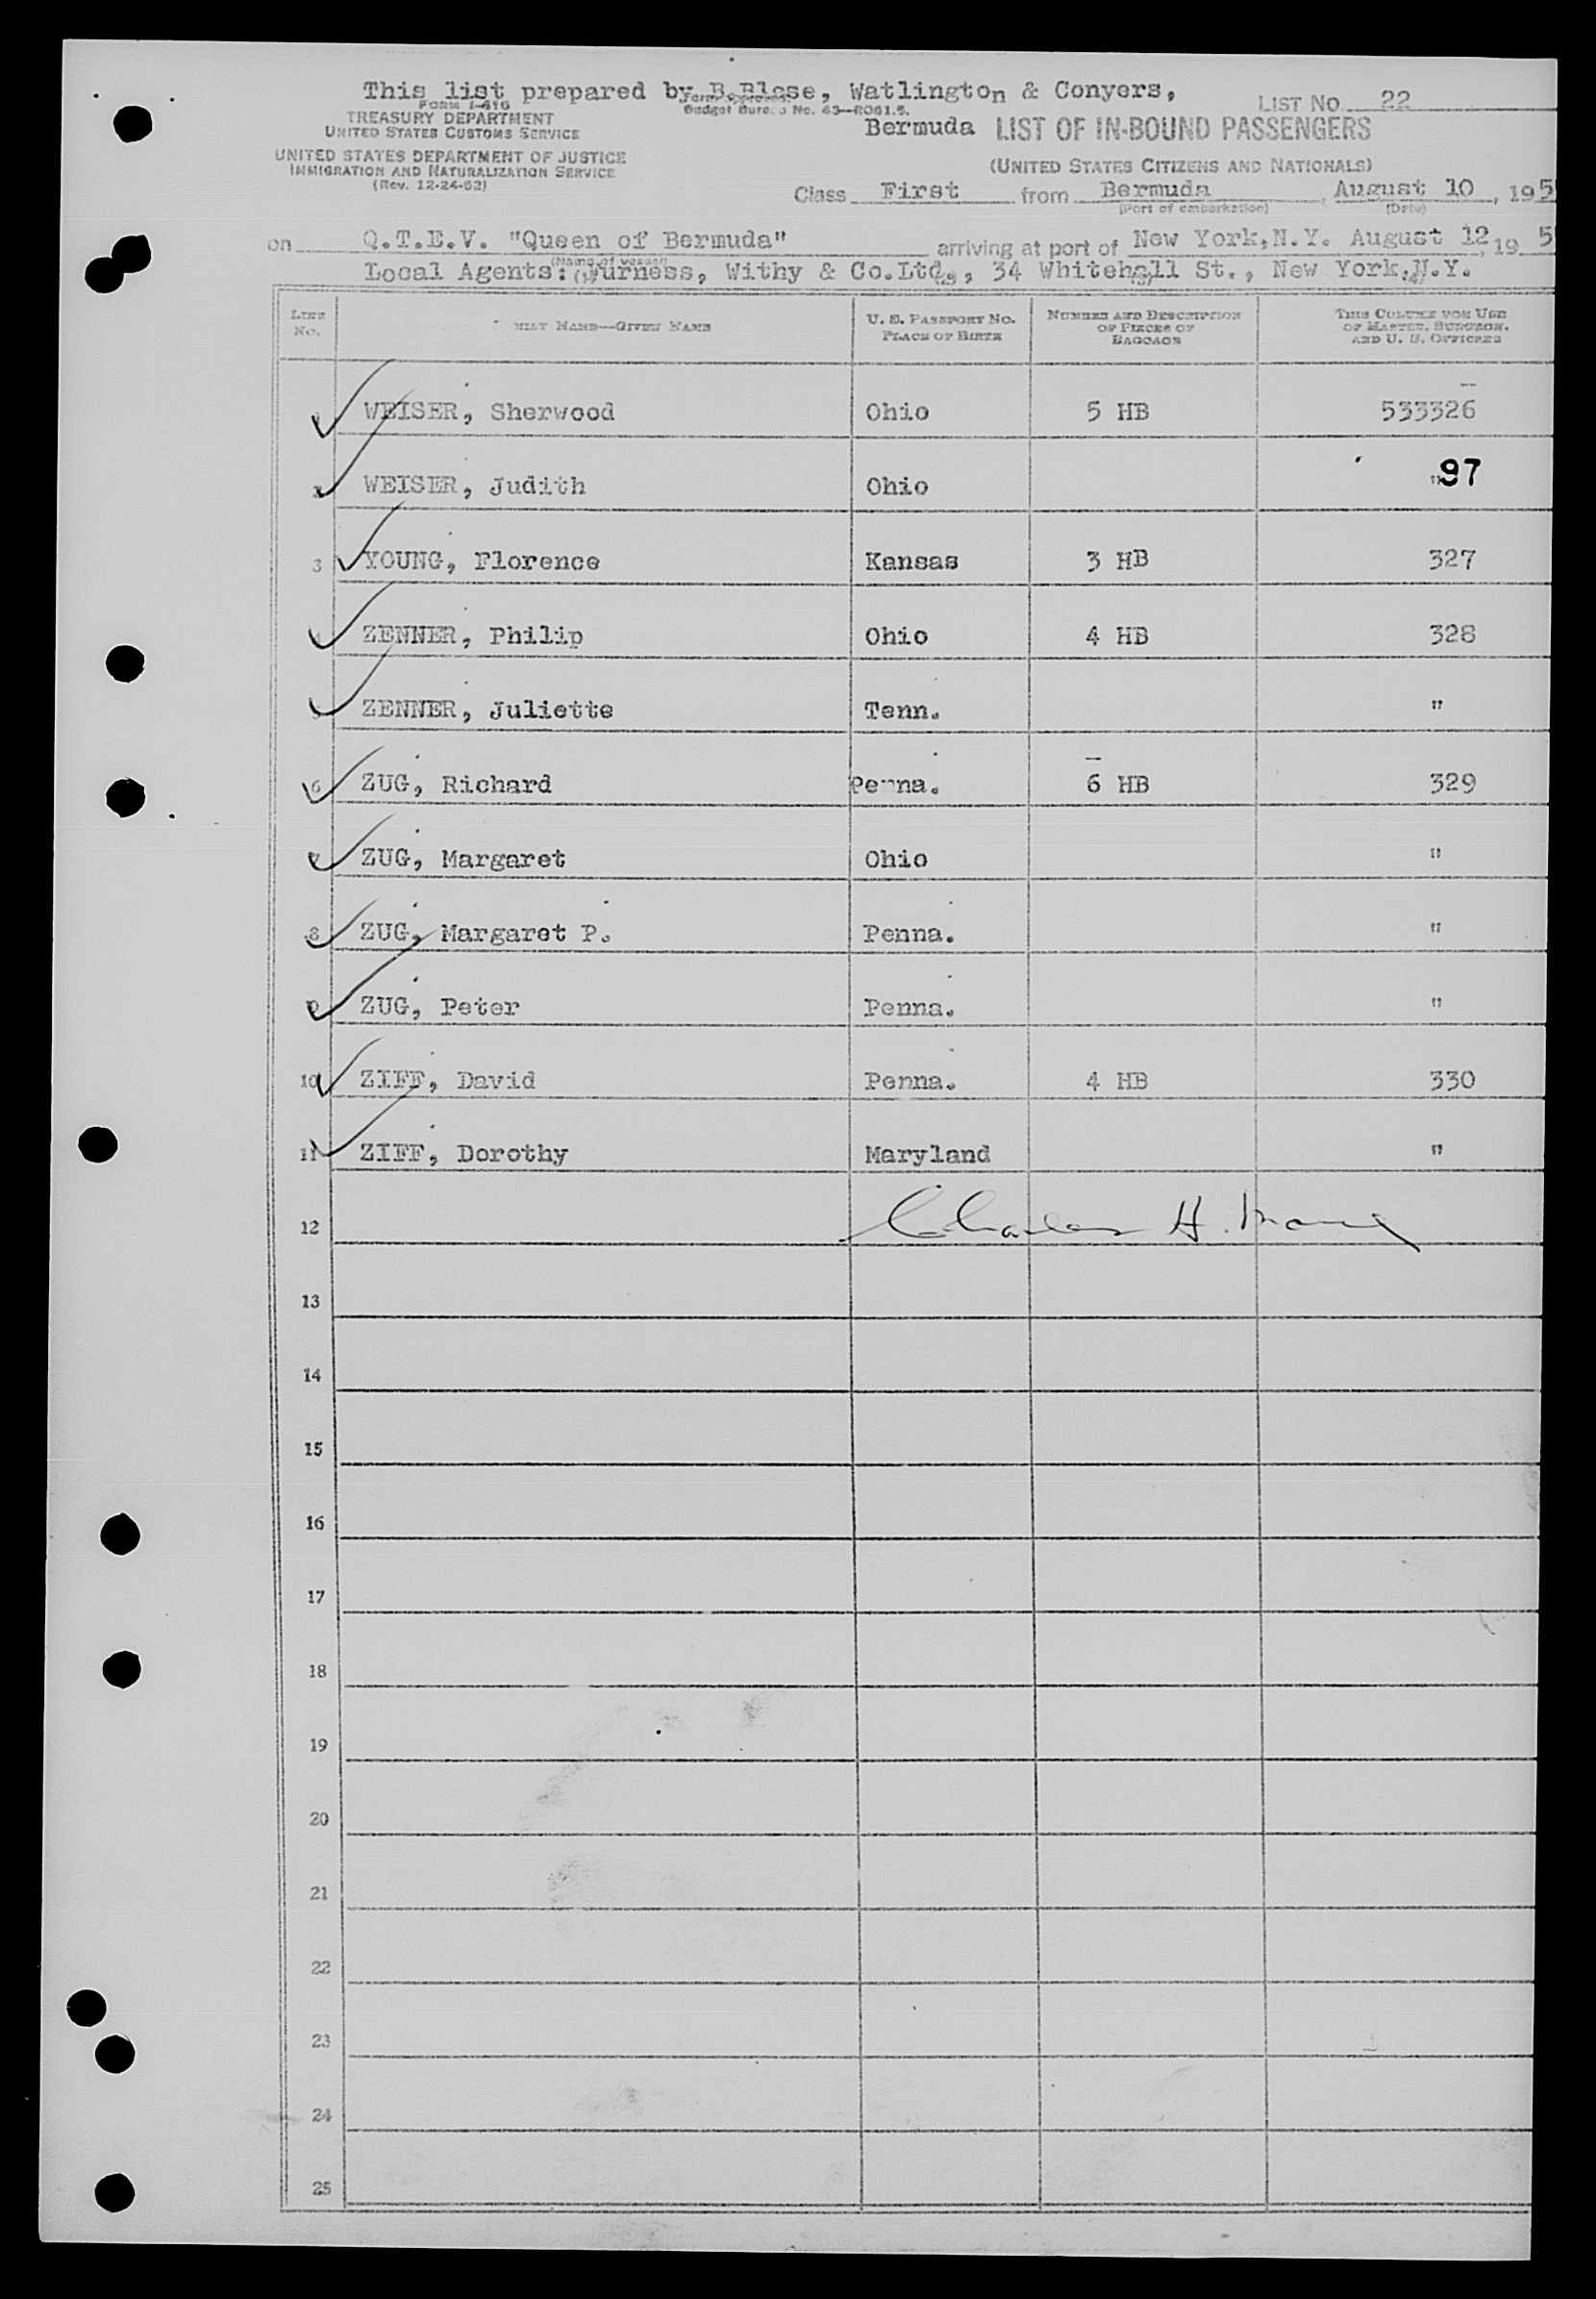 This list prepared by B.Blase, Watlington & Conyers,
FORM I-416
TREASURY DEPARTMENT
UNITED STATES CUSTOMS SERVICE
Form approved.
Budget Bureau No. 43—R061.5.
LIST No. 22
Bermuda LIST OF IN-BOUND PASSENGERS
UNITED STATES DEPARTMENT OF JUSTICE
IMMIGRATION AND NATURALIZATION SERVICE
(Rev. 12-24-52)
(UNITED STATES CITIZENS AND NATIONALS)
Class First from Bermuda, August 10, 195
(Port of embarkation) (Date)
on Q.T.E.V. "Queen of Bermuda" arriving at port of New York, N.Y. August 12, 19 5
(Name of vessel)
Local Agents: Furness, Withy & Co.Ltd., 34 Whitehall St., New York, N.Y.
LINE No. NAME—GIVEN NAME U. S. PASSPORT NO. PLACE OF BIRTH NUMBER AND DESCRIPTION OF PIECES OF BAGGAGE THIS COLUMN FOR USE OF MASTER, SURGEON, AND U. S. OFFICERS
WEISER, Sherwood Ohio 5 HB 533326
WEISER, Judith Ohio " 97
3 YOUNG, Florence Kansas 3 HB 327
ZENNER, Philip Ohio 4 HB 328
ZENNER, Juliette Tenn. "
6 ZUG, Richard Penna. 6 HB 329
7 ZUG, Margaret Ohio "
8 ZUG, Margaret P. Penna. "
9 ZUG, Peter Penna. "
10 ZIFF, David Penna. 4 HB 330
11 ZIFF, Dorothy Maryland "
12 Charles H.
13
14
15
16
17
18
19
20
21
22
23
24
25